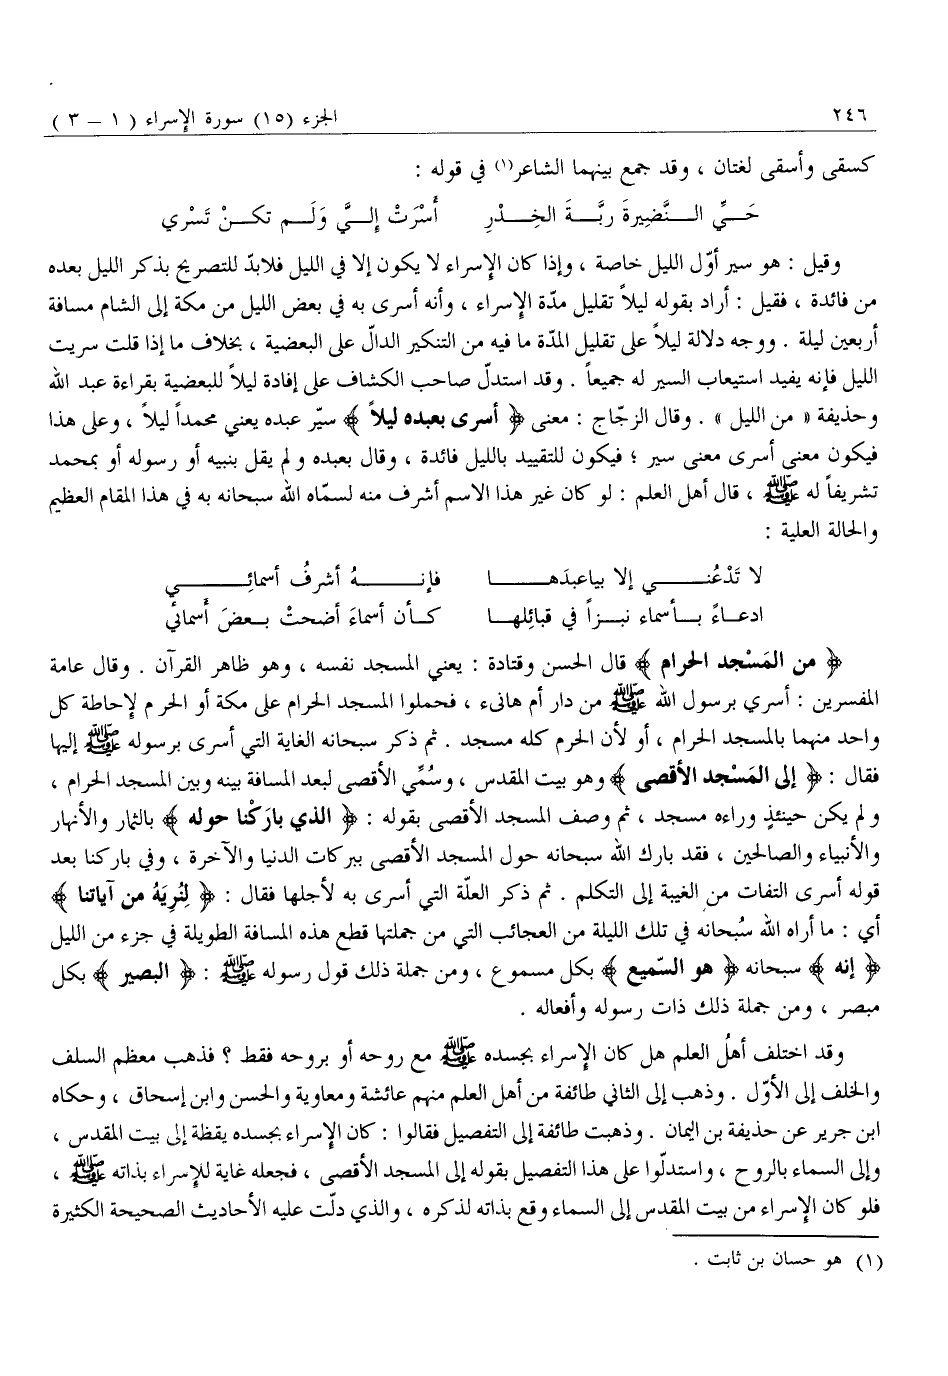 ٢٤٦ الجزء (١٥) سورة الإسراء ( ١ – ٣ )
كسقى وأسقى لغتان ، وقد جمع بينهما الشاعر(١) في قوله :
حَــيِّ الــنَّضِيرةَ ربَّــةَ الخِــدْرِ أَسْرَتْ إلــيَّ وَلَــم تكــنْ تَسْري
وقيل : هو سير أوّل الليل خاصة ، وإذا كان الإسراء لا يكون إلا في الليل فلابدّ للتصريح بذكر الليل بعده
من فائدة ، فقيل : أراد بقوله ليلاً تقليل مدّة الإسراء ، وأنه أسرى به في بعض الليل من مكة إلى الشام مسافة
أربعين ليلة . ووجه دلالة ليلاً على تقليل المدّة ما فيه من التنكير الدالّ على البعضية ، بخلاف ما إذا قلت سريت
الليل فإنه يفيد استيعاب السير له جميعاً . وقد استدلّ صاحب الكشاف على إفادة ليلاً للبعضية بقراءة عبد الله
وحذيفة « من الليل » . وقال الزجّاج : معنى ﴿ أسرى بعبده ليلاً ﴾ سيّر عبده يعني محمداً ليلاً ، وعلى هذا
فيكون معنى أسرى معنى سير ؛ فيكون للتقييد بالليل فائدة ، وقال بعبده ولم يقل بنبيه أو رسوله أو بمحمد
تشريفاً له ﷺ ، قال أهل العلم : لو كان غير هذا الاسم أشرف منه لسمّاه الله سبحانه به في هذا المقام العظيم
والحالة العلية :
لا تَدْعُنــــي إلا بياعبدَهــــا فإنــــهُ أشرفُ أسمائِــــي
ادعــاءً بــأسماء نبــزاً في قبائِلهــا كــأن أسماءَ أضحتْ بــعضَ أَسمائي
﴿ من المَسْجد الحرام ﴾ قال الحسن وقتادة : يعني المسجد نفسه ، وهو ظاهر القرآن . وقال عامة
المفسرين : أسري برسول الله ﷺ من دار أم هانىء ، فحملوا المسجد الحرام على مكة أو الحرم لإحاطة كل
واحد منهما بالمسجد الحرام ، أو لأن الحرم كله مسجد . ثم ذكر سبحانه الغاية التي أسرى برسوله ﷺ إليها
فقال : ﴿ إلى المَسْجد الأقصى ﴾ وهو بيت المقدس ، وسُمِّي الأقصى لبعد المسافة بينه وبين المسجد الحرام ،
ولم يكن حينئذٍ وراءه مسجد ، ثم وصف المسجد الأقصى بقوله : ﴿ الذي بارَكْنا حوله ﴾ بالثمار والأنهار
والأنبياء والصالحين ، فقد بارك الله سبحانه حول المسجد الأقصى ببركات الدنيا والآخرة ، وفي باركنا بعد
قوله أسرى التفات من الغيبة إلى التكلم . ثم ذكر العلّة التي أسرى به لأجلها فقال : ﴿ لِنُريَهُ من آياتنا ﴾
أي : ما أراه الله سُبحانه في تلك الليلة من العجائب التي من جملتها قطع هذه المسافة الطويلة في جزء من الليل
﴿ إنه ﴾ سبحانه ﴿ هو السّميع ﴾ بكل مسموع ، ومن جملة ذلك قول رسوله ﷺ : ﴿ البصير ﴾ بكل
مبصر ، ومن جملة ذلك ذات رسوله وأفعاله .
وقد اختلف أهلُ العلم هل كان الإسراء بجسده ﷺ مع روحه أو بروحه فقط ؟ فذهب معظم السلف
والخلف إلى الأوّل . وذهب إلى الثاني طائفة من أهل العلم منهم عائشة ومعاوية والحسن وابن إسحاق ، وحكاه
ابن جرير عن حذيفة بن اليمان . وذهبت طائفة إلى التفصيل فقالوا : كان الإسراء بجسده يقظة إلى بيت المقدس ،
وإلى السماء بالروح ، واستدلّوا على هذا التفصيل بقوله إلى المسجد الأقصى ، فجعله غاية للإسراء بذاته ﷺ ،
فلو كان الإسراء من بيت المقدس إلى السماء وقع بذاته لذكره ، والذي دلّت عليه الأحاديث الصحيحة الكثيرة
(١) هو حسان بن ثابت .